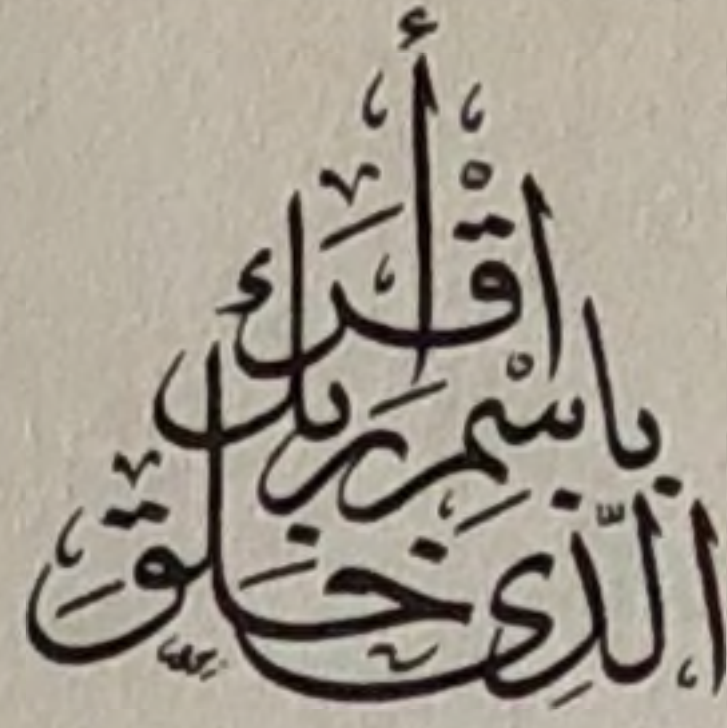 اقْرَأ
بِاسْمِ رَبِّكَ
الَّذِى خَلَقَ